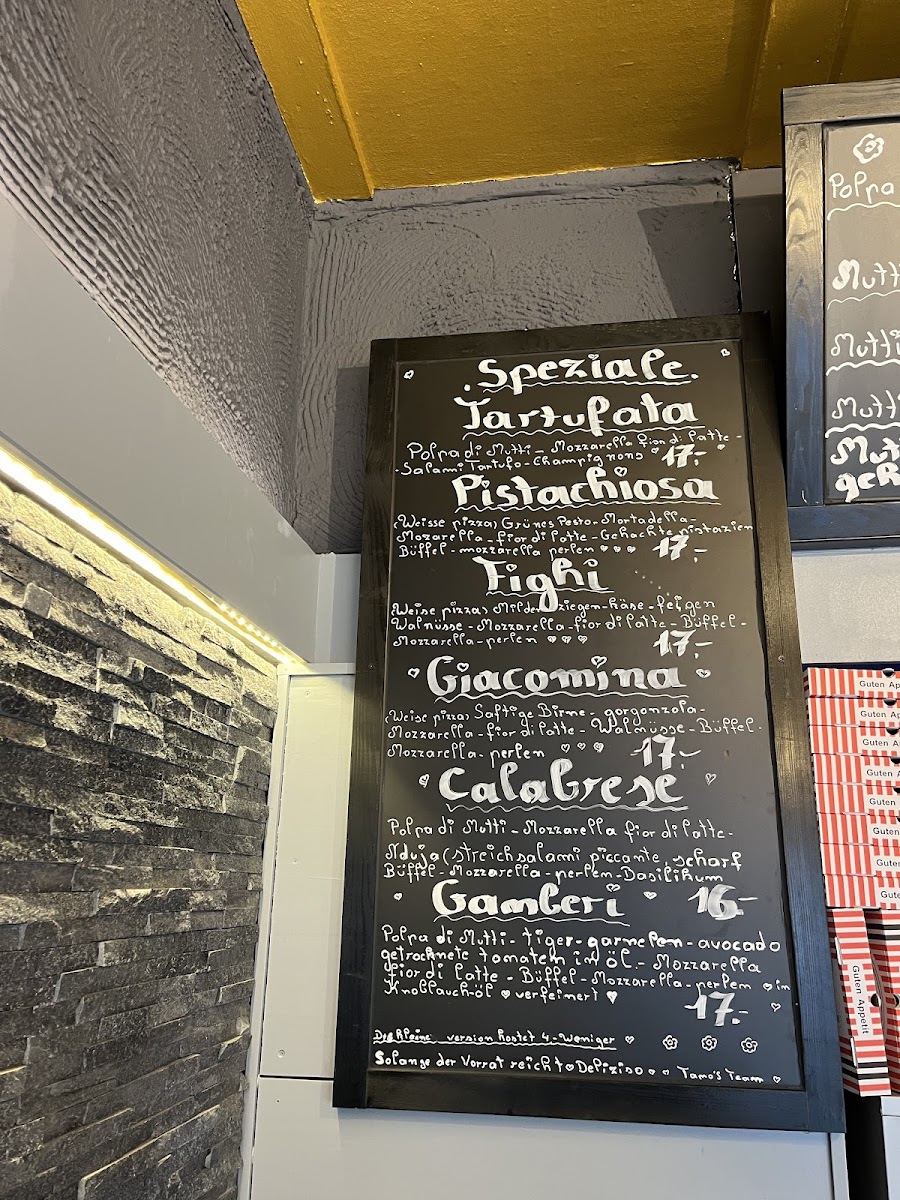 .Speziale.
Tartufata
Polpa di Mutti - Mozzarella fior di latte -
- Salami Tartufo - Champignons 17.-
Pistachiosa
(Weisse pizza) Grünes Pesto - Mortadella -
Mozarella - fior di latte - Gehackte pistazien
Büffel - mozzarella perlen 17.-
Fighi
(Weise pizza) Milder ziegen-käse - feigen
Walnüsse - Mozzarella - fior di latte - Büffel -
Mozzarella - perlen 17.-
Giacomina
(Weise pizza) Saftige Birne - gorgonzola -
Mozzarella - fior di latte - Walnüsse - Büffel -
Mozzarella - perlen 17.-
Calabrese
Polpa di Mutti - Mozzarella fior di latte -
Nduja (streichsalami piccante, scharf
Büffel - Mozzarella - perlen - Basilikum
16-
Gamberi
Polpa di Mutti - tiger - garnelen - avocado
getrocknete tomaten in öl - Mozzarella
fior di latte - Büffel - Mozzarella - perlen in
Knoblauchöl verfeinert
17.-
Die Kleine version kostet 4.- Weniger
Solange der Vorrat reicht Deliziso Tamo's Team
Polpa
Mutti
Mutti
Mutti
Guten Ap
Guten Ap
Guten Ap
Guten Ap
Guten Ap
Guten Ap
Guten Ap
Guten Ap
Guten Appetit
Guten Appetit